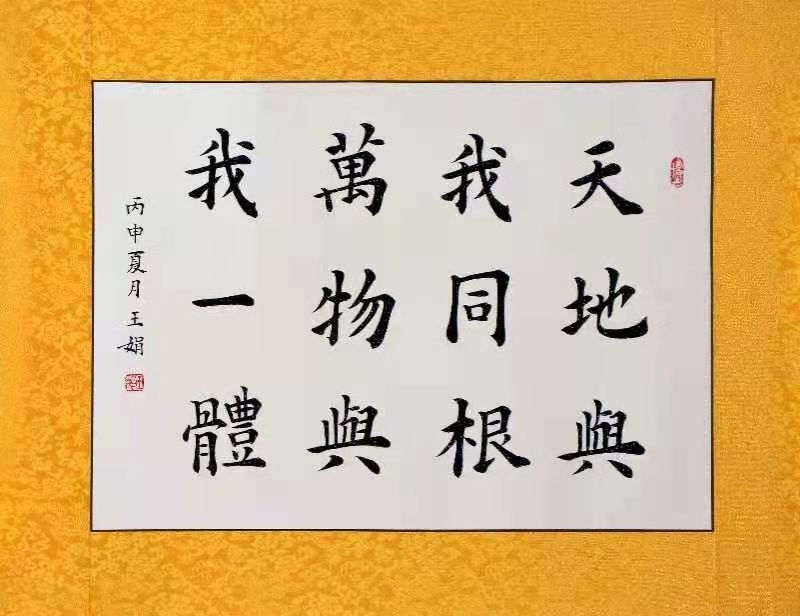 天地與
我同根
萬物與
我一體
丙申夏月王娟